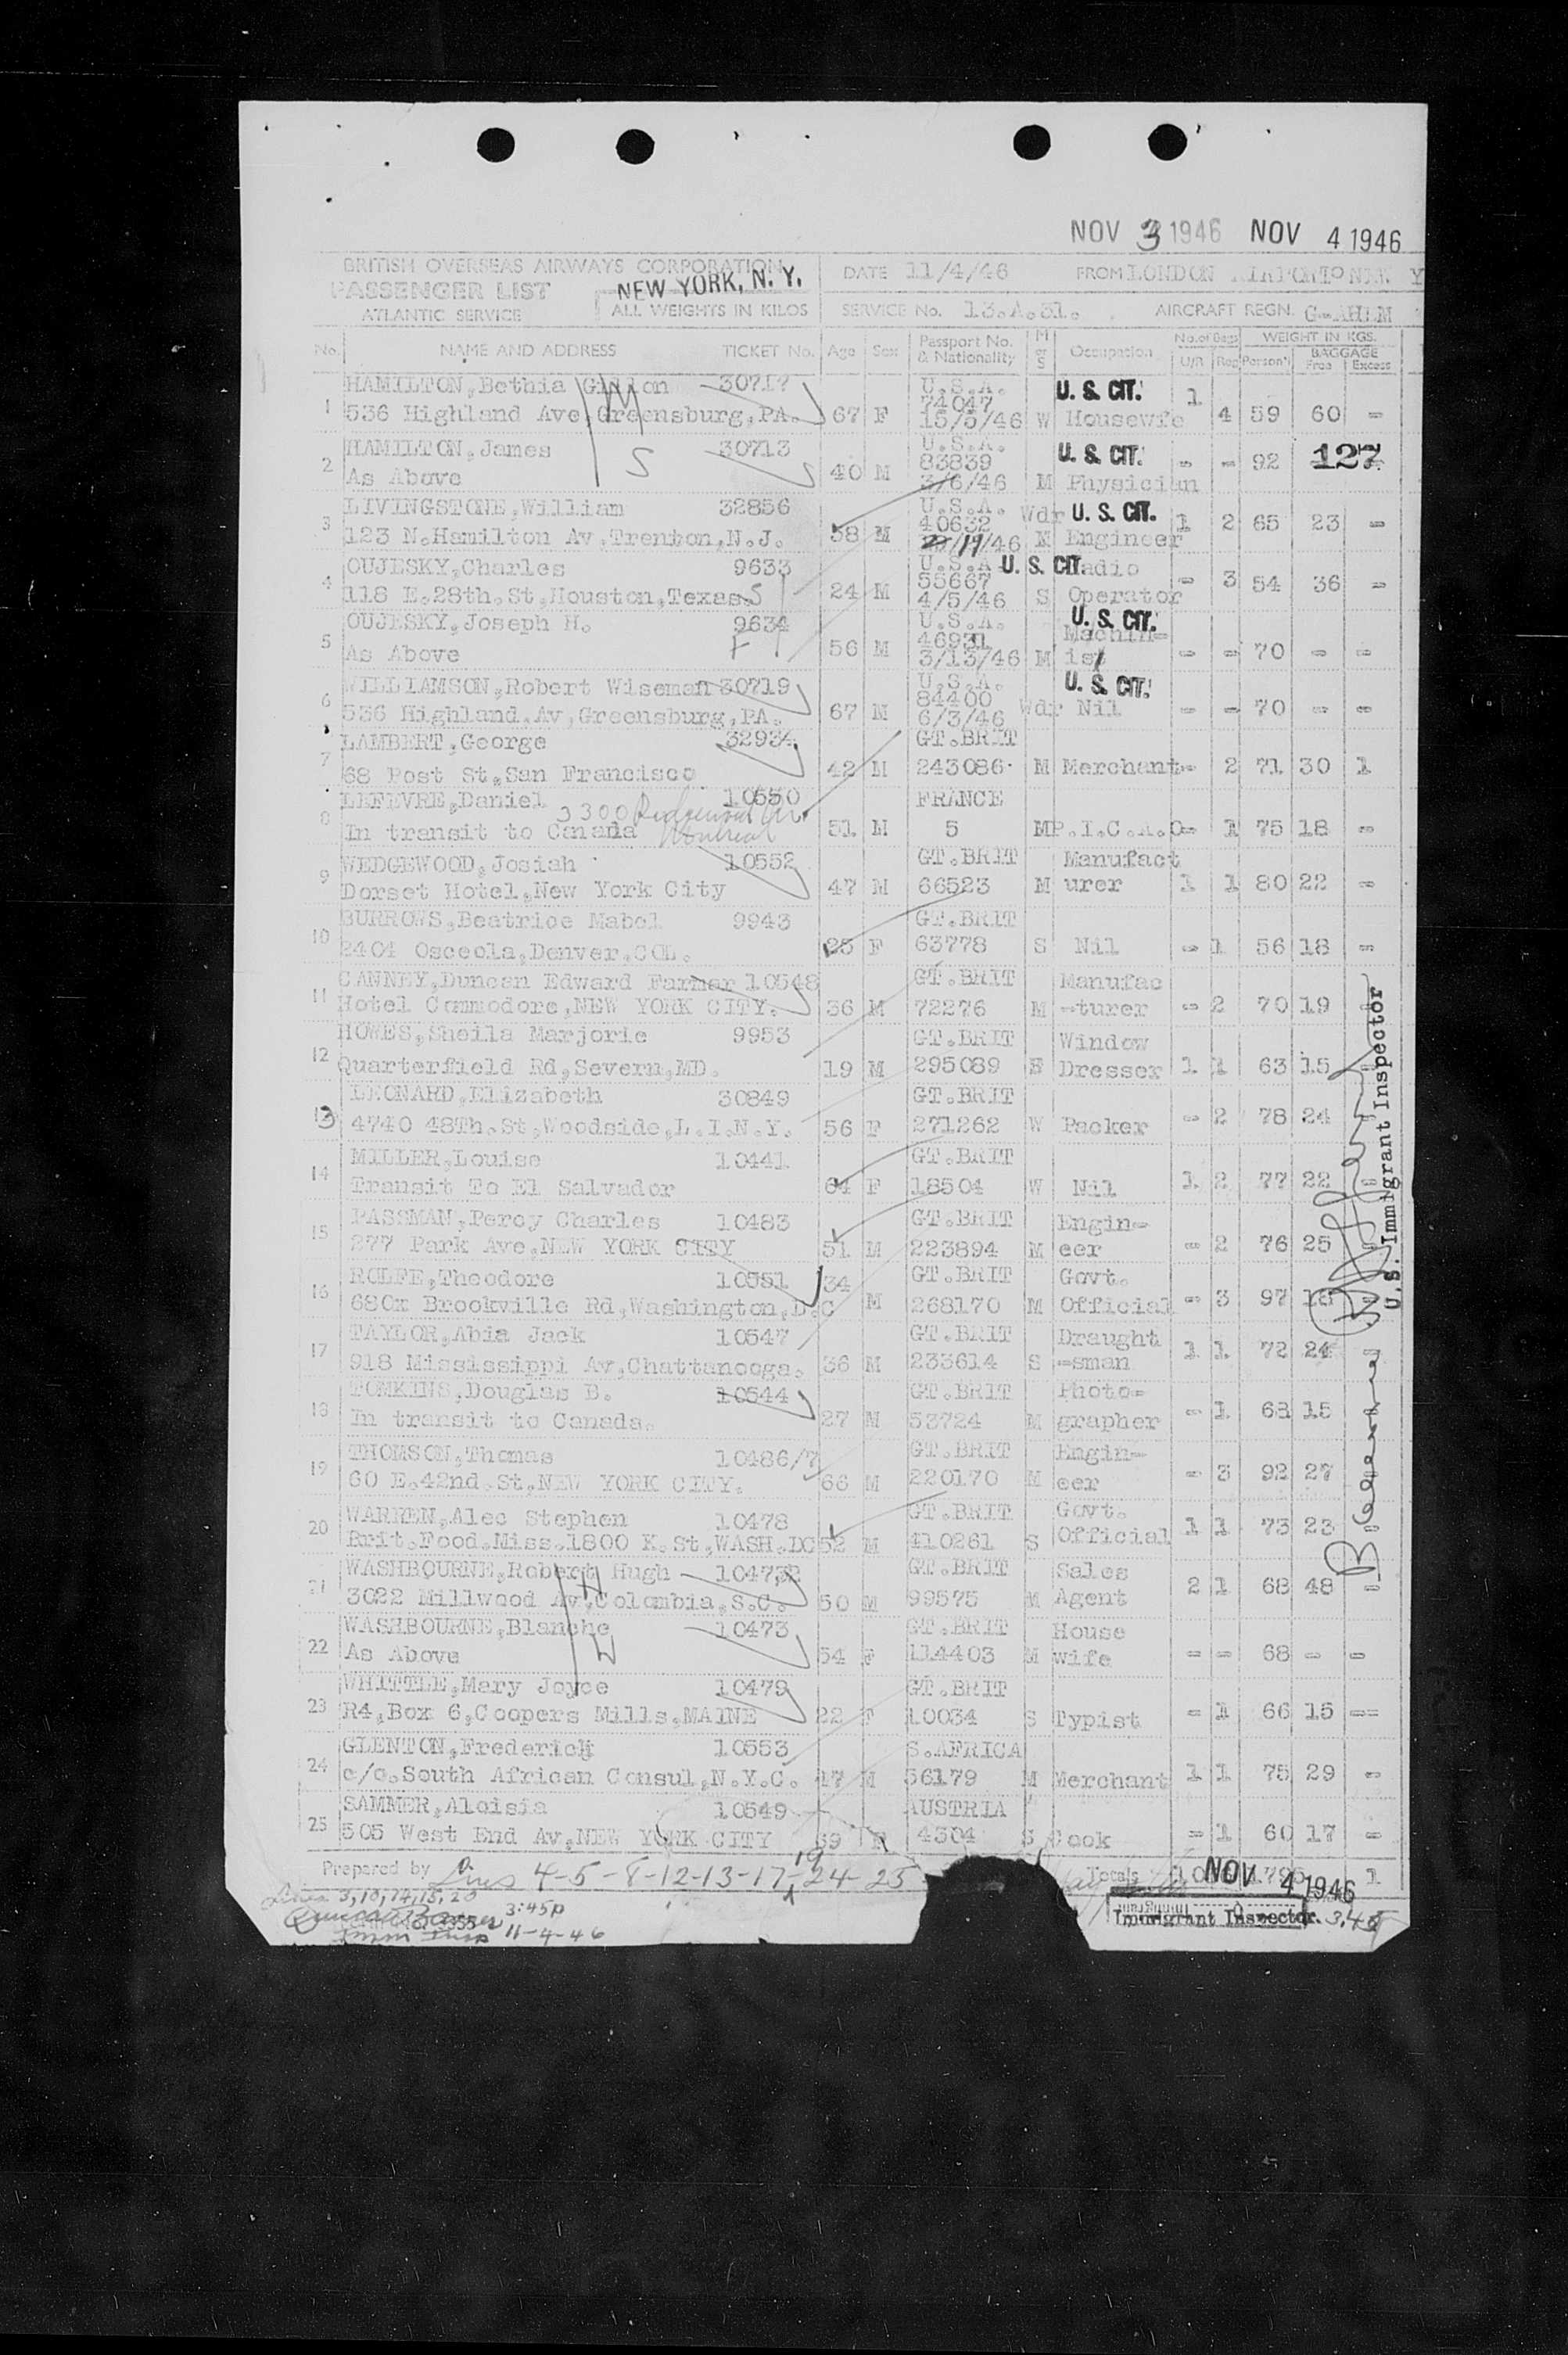 NOV 3 1946 NOV 4 1946
BRITISH OVERSEAS AIRWAYS CORPORATION
PASSENGER LIST NEW YORK, N. Y. DATE 11/4/46 FROM LONDON
ATLANTIC SERVICE ALL WEIGHTS IN KILOS SERVICE No. 13.A.31. AIRCRAFT REGN. G-AHEM
No. NAME AND ADDRESS TICKET No. Age Sex Passport No. & Nationality M or S Occupation No. of Bags U/R Reg WEIGHT IN KGS. Person'l BAGGAGE Free Excess
HAMILTON,Bethia 30717 U.S.A. U. S. CIT. 1
1 536 Highland Ave,Greensburg,PA. 67 F 74047 15/5/46 W Housewife 4 59 60 -
HAMILTON,James 30713 U.S.A. U. S. CIT. 127
2 As Above S 40 M 83839 3/6/46 M Physician - - 92
LIVINGSTONE,William 32856 U.S.A. Wdr U. S. CIT.
3 123 N.Hamilton Av.Trenton,N.J. 58 M 40632 /19/46 M Engineer 1 2 65 23 -
OUJESKY,Charles 9633 U.S.A U. S. CIT. adio
4 118 E.28th.St,Houston,Texas. S 24 M 55667 4/5/46 S Operator - 3 54 36 -
OUJESKY,Joseph H. 9634 U.S.A. U. S. CIT. Machin=
5 As Above F 56 M 46931 3/13/46 M ist - - 70 - -
WILLIAMSON,Robert Wiseman 30719 U.S.A. U. S. CIT.
6 536 Highland.Av,Greensburg,PA. 67 M 84400 6/3/46 Wdr Nil - - 70 - -
LAMBERT,George 32934 GT.BRIT
7 68 Post St.San Francisco 42 M 243086 M Merchant - 2 71 30 1
LEFEVRE,Daniel 3300 Ridgewood Av. 10550 FRANCE
8 In transit to Canada Montreal 51 M 5 M P.I.C.A.O - 1 75 18 -
WEDGEWOOD,Josiah 10552 GT.BRIT Manufact
9 Dorset Hotel,New York City 47 M 66523 M urer 1 1 80 22 -
BURROWS,Beatrice Mabel 9943 GT.BRIT
10 2404 Osceola,Denver,COL. 25 F 63778 S Nil - 1 56 18 -
CANNEY,Duncan Edward Farmer 10548 GT.BRIT Manufac
11 Hotel Commodore,NEW YORK CITY. 36 M 72276 M =turer - 2 70 19
HOWES,Sheila Marjorie 9953 GT.BRIT Window
12 Quarterfield Rd,Severn,MD. 19 M 295089 Dresser 1 1 63 15
LEONARD,Elizabeth 30849 GT.BRIT
13 4740 48Th.St,Woodside,L.I.N.Y. 56 F 271262 W Packer - 2 78 24
MILLER,Louise 10441 GT.BRIT
14 Transit To El Salvador 64 F 18504 W Nil 1 2 77 22
PASSMAN,Percy Charles 10483 GT.BRIT Engin=
15 277 Park Ave.NEW YORK CITY 51 M 223894 M eer - 2 76 25
ROLFE,Theodore 10551 34 GT.BRIT Govt.
16 680x Brookville Rd,Washington,D.C M 268170 M Official - 3 97 18
TAYLOR,Abia Jack 10547 GT.BRIT Draught
17 918 Mississippi Av,Chattanooga. 36 M 233614 S =sman 1 1 72 24
TOMKINS,Douglas B. 10544 GT.BRIT Photo=
18 In transit to Canada. 27 M 53724 M grapher - 1 68 15
THOMSON,Thomas 10486/7 GT.BRIT Engin=
19 60 E.42nd.St,NEW YORK CITY. 66 M 220170 M eer - 3 92 27
WARREN,Alec Stephen 10478 GT.BRIT Govt.
20 Brit.Food.Miss.1800 K.St,WASH.DC 52 M 410261 S Official 1 1 73 23
WASHBOURNE,Robert Hugh GT.BRIT Sales
21 3022 Millwood Av,Colombia,S.C. H 50 M 99575 M Agent 2 1 68 48 -
WASHBOURNE,Blanche 10473 GT.BRIT House
22 As Above W 54 F 114403 M wife - - 68 - -
WHITTLE,Mary Joyce 10479 GT.BRIT
23 R4,Box 6,Coopers Mills,MAINE 22 F 10034 S Typist - 1 66 15 --
GLENTON,Frederick 10553 S.AFRICA
24 c/o.South African Consul,N.Y.C. 47 M 56179 M Merchant 1 1 75 29 -
SAMMER,Aloisia 10549 AUSTRIA
25 505 West End Av,NEW YORK CITY 39 F 4304 S Cook - 1 60 17 -
Prepared by Lines 4-5-8-12-13-17-19-24-25 Totals 10 1
NOV 4 1946
Lines 3,10,14,15,20
3:45p
Imm Insp 11-4-46
Immigrant Inspector. 3.45
U. S. Immigrant Inspector